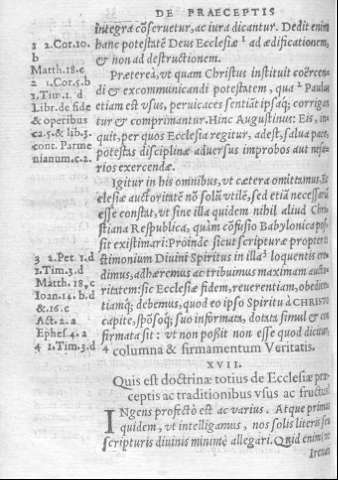 DE PRAECEPTIS
integra cõseruetur, ac iura dicantur. Dedit enim
hanc potestatẽ Deus Ecclesiæ ¹ ad ædificationem,
& non ad destructionem.
Præterea, vt quam Christus instituit coërcen
di & excommunicandi potestatem, qua ² Paulus
etiam est vsus, peruicaces sentiãt ipsaq; corrigan
tur & comprimantur. Hinc Augustinus: Eis, in-
quit, per quos Ecclesia regitur, adest, salua pace,
potestas disciplinæ aduersus improbos aut nefa-
rios exercendæ.
Igitur in his omnibus, vt cætera omittamus, Ec
clesiæ auctoritatẽ nõ solũ vtilẽ, sed etiã necessariã
esse constat, vt sine illa quidem nihil aliud Chri-
stiana Respublica, quàm cõfusio Babylonica pos-
sit existimari: Proinde sicut scripturæ propter te
stimonium Diuini Spiritus in illa ³ loquentis cre
dimus, adhæremus ac tribuimus maximam aucto
ritatem: sic Ecclesiæ fidem, reuerentiam, obedien
tiamq; debemus, quod eo ipso Spiritu à CHRISTO
capite, spõsoq; suo informata, dotata simul & con
firmata sit: vt non possit non esse quod dicitur,
⁴ columna & firmamentum Veritatis.
XVII.
Quis est doctrinæ totius de Ecclesiæ præ-
ceptis ac traditionibus vsus ac fructus?
INgens profictò est ac varius. Atque primùm
quidem, vt intelligamus, nos solis literis seu
scripturis diuinis minimè allegari. Quid enim (vt
Irenæi
1 2.Cor.10.
b
Matth.18.c
2 1.Cor.5.b
1.Tim.1.d
Libr.de fide
& operibus
c2.5.& lib.3.
cont. Parme
nianum.c.2.
3 2.Pet.1.d
2.Tim.3.d
Matth.18,c
Ioan.14.b.d
&.16.c
Act.2.a
Ephes.4.a
4 1.Tim.3.d